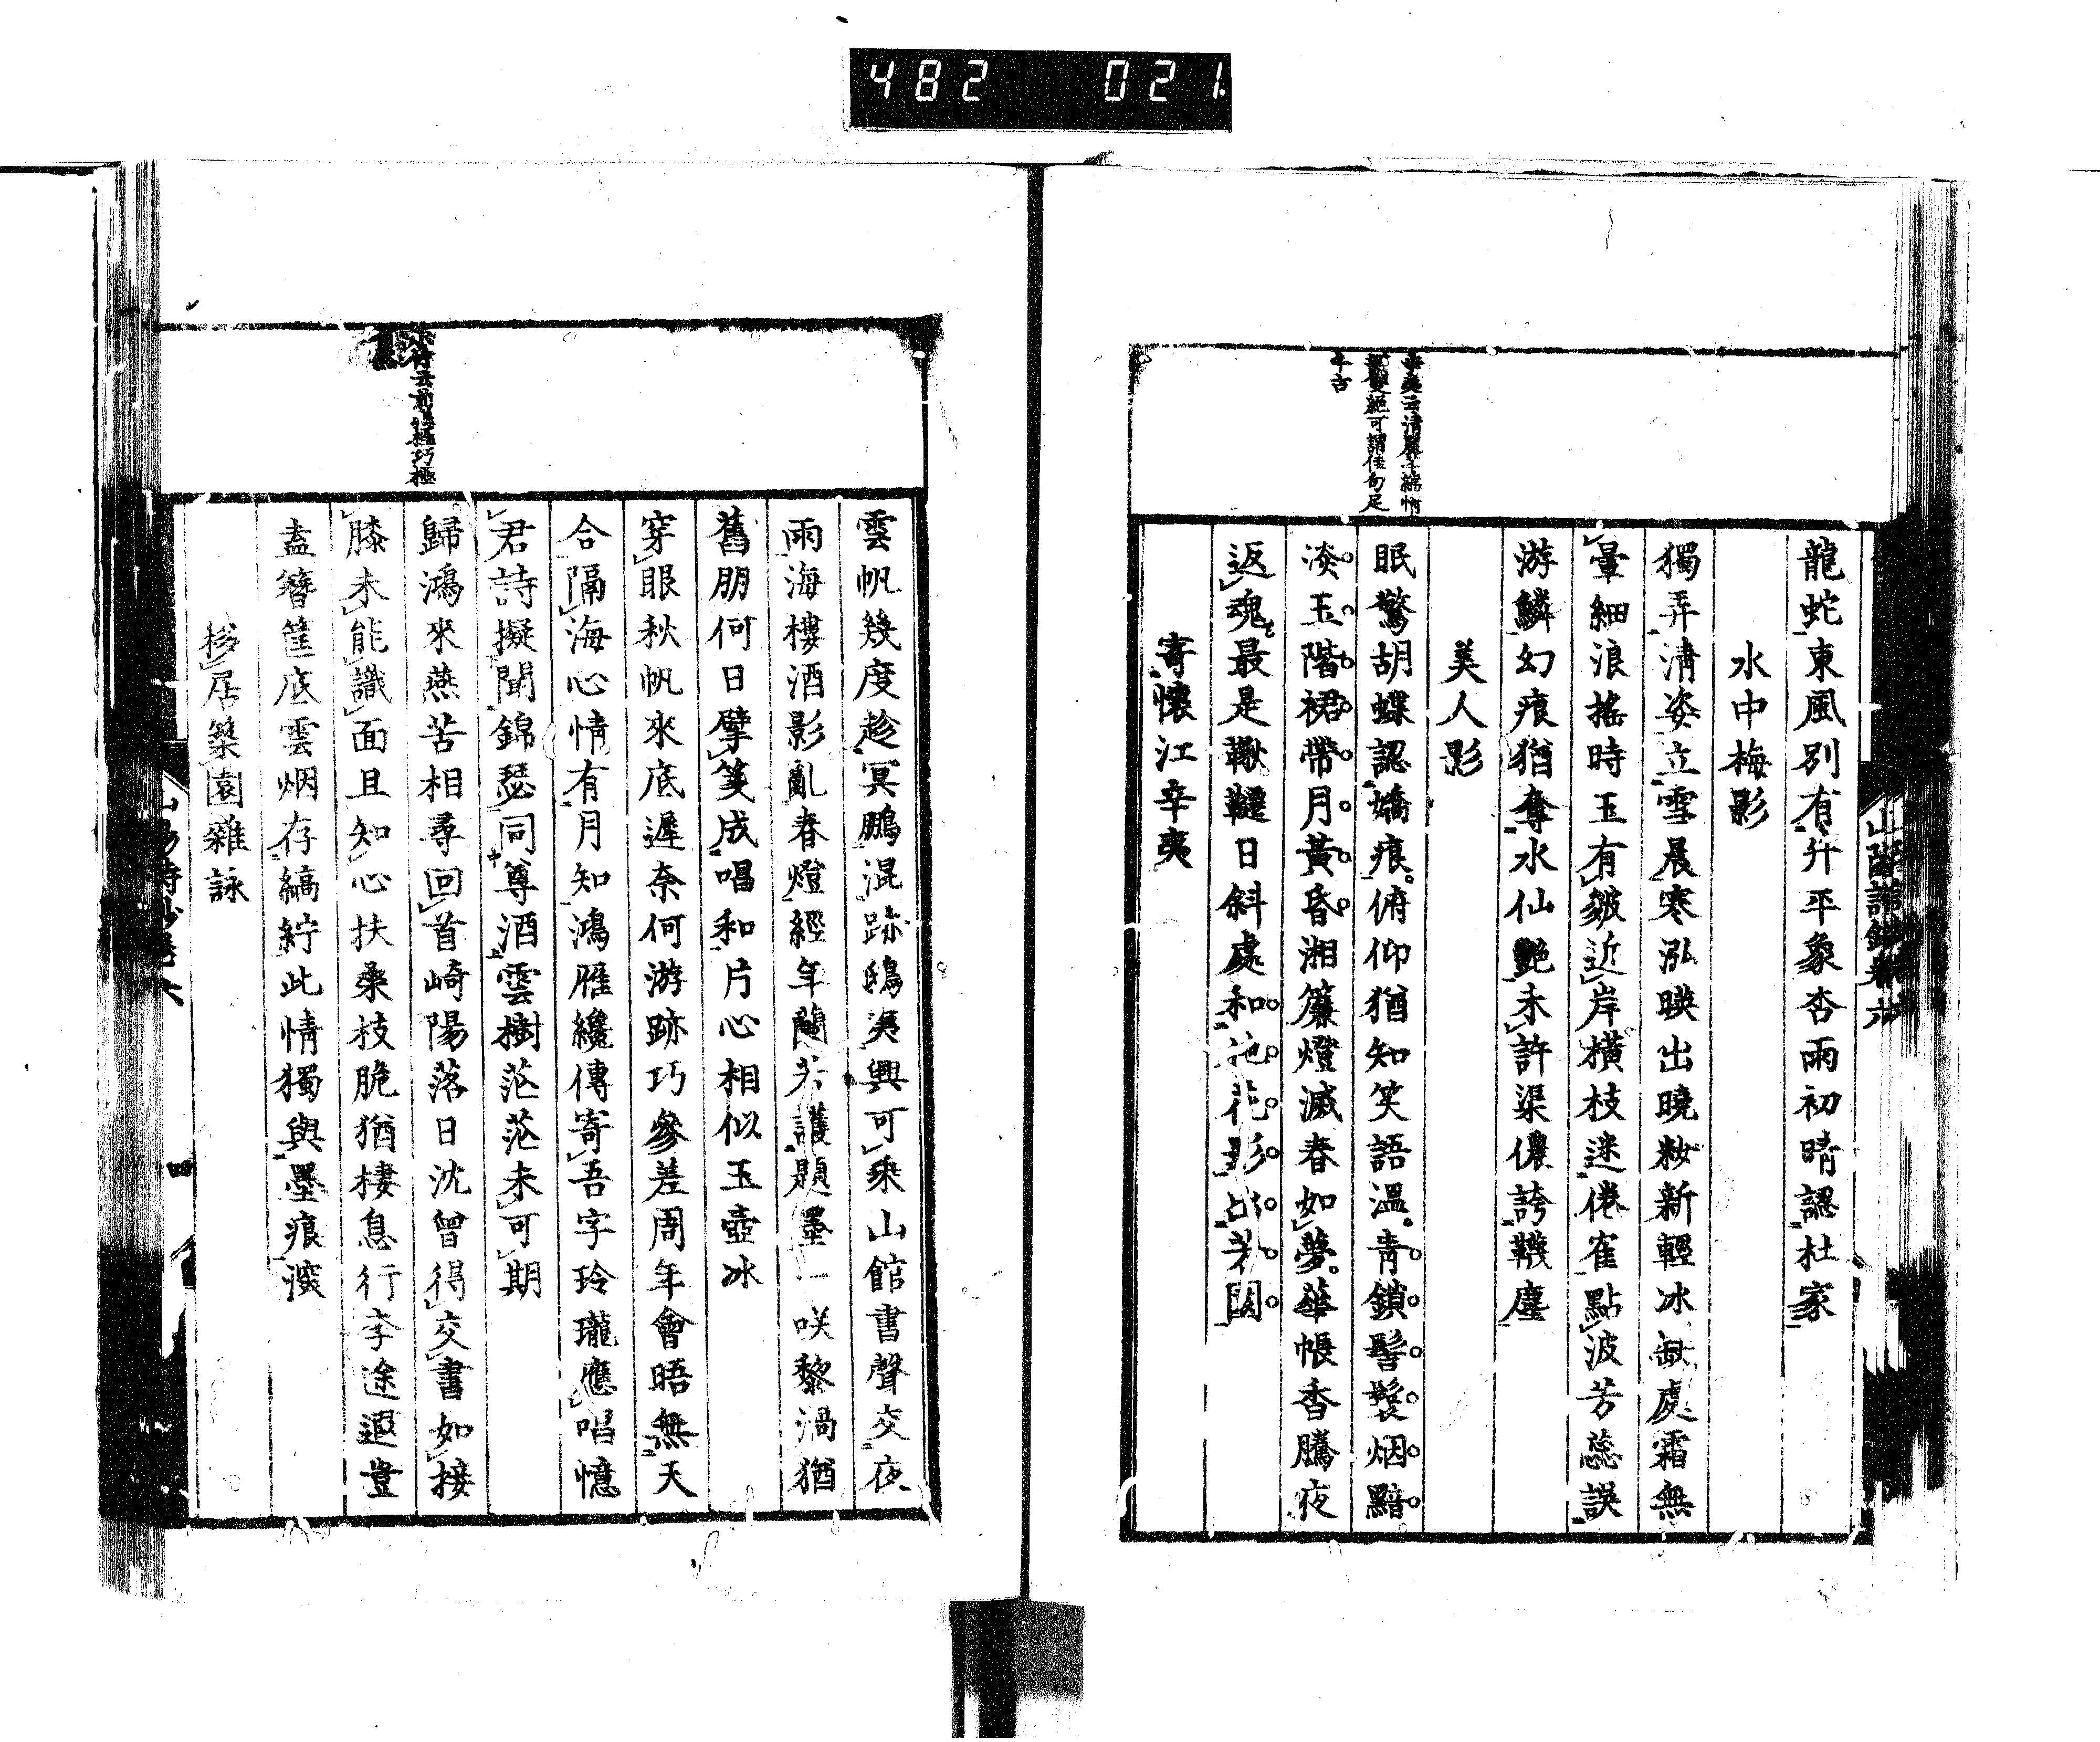 482 021
龍蛇東風別有升平象杏雨初晴認杜家
水中梅影
獨弄清姿立雪晨寒泓暎出曉粧新輕冰缺處霜無
暈細浪搖時玉有皴近岸橫枝迷倦雀點波芳蕊誤
游鱗幻痕猶奪水仙艷未許渠儂誇韈塵
美人影
眠驚胡蝶認嬌痕俯仰猶知笑語溫青鎖髻鬟烟黯
淡玉階裙帶月黃昏湘簾燈滅春如夢華帳香騰夜
返魂最是鞦韆日斜處和花影占芳園
寄懷江辛夷
云清麗
雙絕可謂佳句足
千古
雲帆幾度趁冥鵬混跡鴟夷興可乘山館書聲交夜
雨海樓酒影亂春燈經年蘭芳護題墨一咲黎渦猶
舊朋何日擘箋成唱和片心相似玉壺冰
穿眼秋帆來底遲奈何游跡巧參差周年會晤無天
合隔海心情有月知鴻雁纔傳寄吾字玲瓏應唱憶
君詩擬聞錦瑟同尊酒雲樹茫茫未可期
歸鴻來燕苦相尋回首崎陽落日沈曾得交書如接
膝未能識面且知心扶桑枝脆猶棲息行李途遐豈
盍簪篋底雲烟存縞紵此情獨與墨痕深
移居築園雜詠
小竹云前